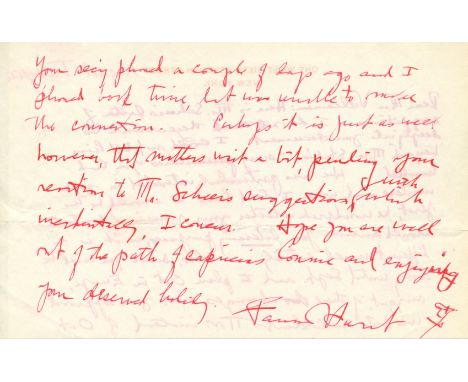 Your secy phoned a couple of days ago and I
phoned back twice, but was unable to make
the connection. Perhaps it is just as well
however, that matters wait a bit, pending your
reaction to Mr. Scheer's suggestions, with which
incidentally, I concur. Hope you are well
out of the path of capricious Connie and enjoying
your deserved holiday.
Fannie Hurst